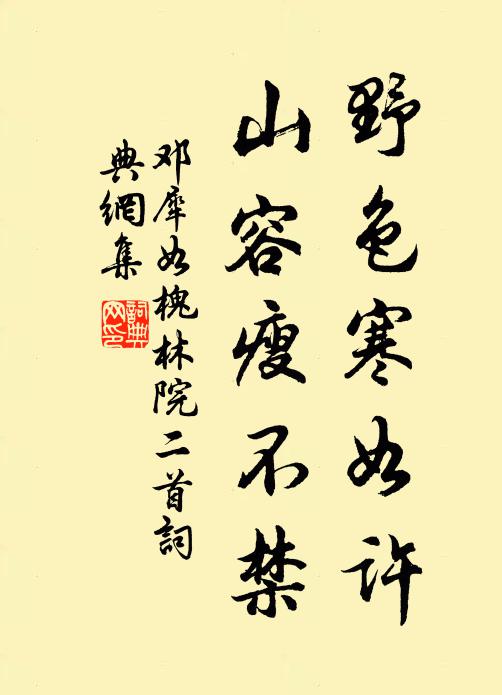 野色寒如许
山容瘦不禁
邓犀如槐林院二首詞
典網集
詞典網印